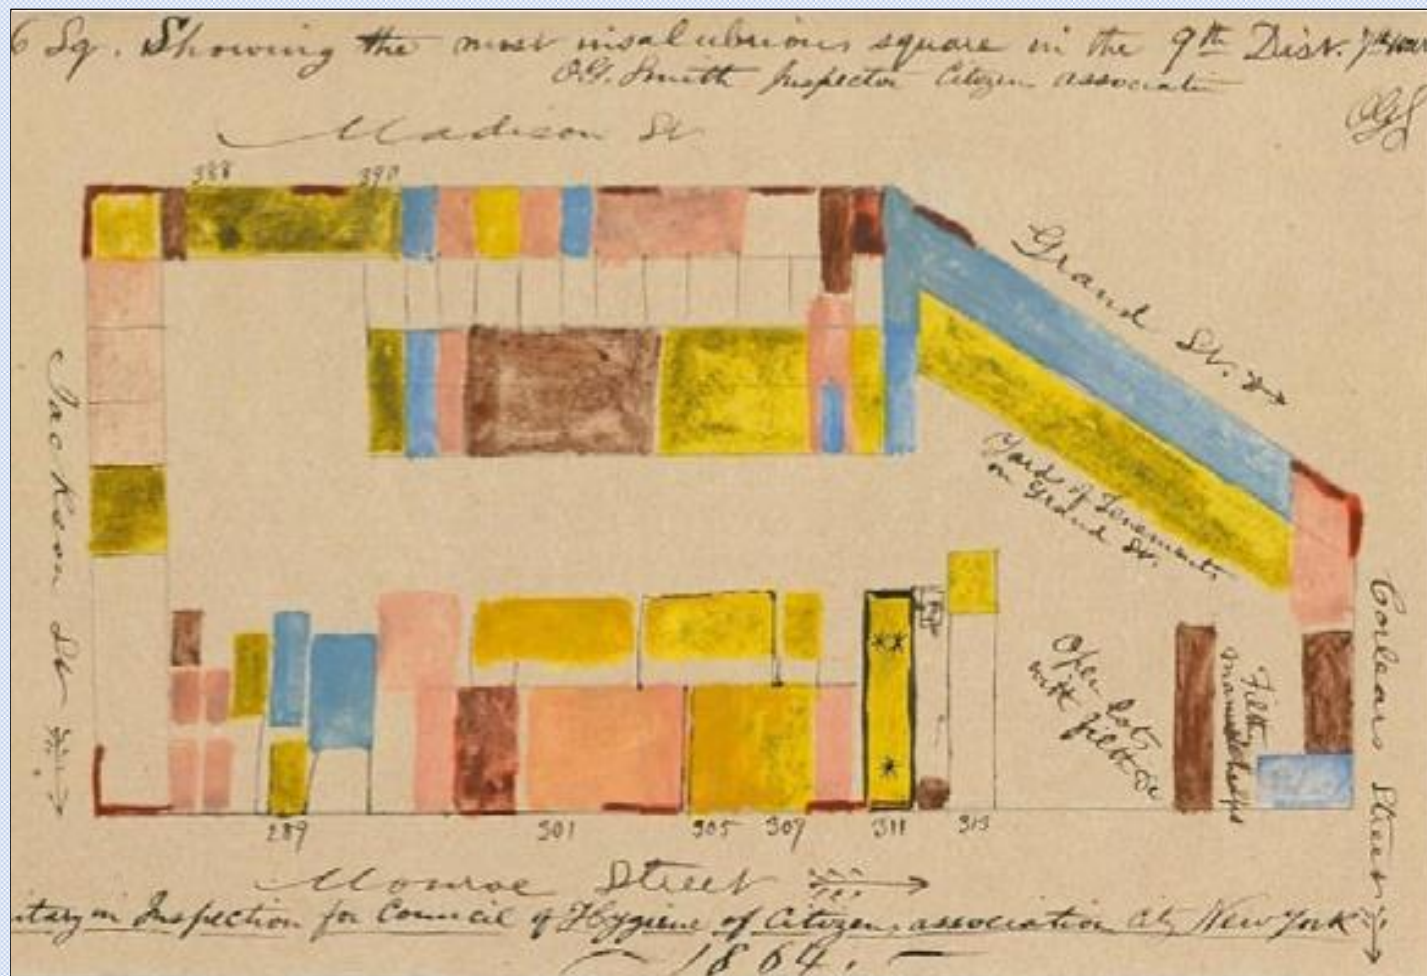 6 Sq. Showing the most insalubrious square in the 9th Dist.
O.G. Smith Inspector Citizens association
OGS
Madison St
388 390
Grand St.
Jackson St
Yard of Tenements
on Grand St.
Open lots
with filth &c
Filth
manure heaps
Corlears Street
289 301 305 309 311 313
Monroe Street
itary in Inspection for Council of Hygiene of Citizens association City New York
1864.